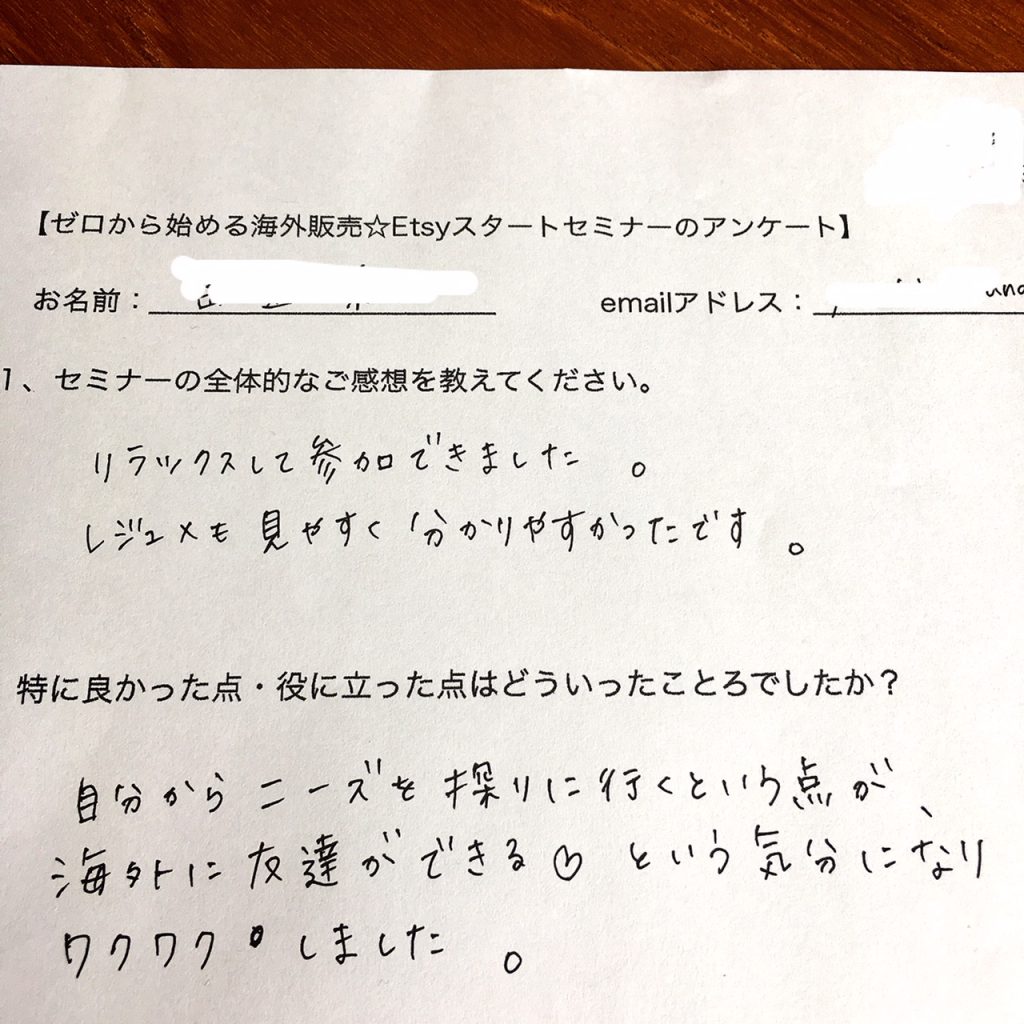 【ゼロから始める海外販売☆Etsyスタートセミナーのアンケート】
お名前： emailアドレス：
1、セミナーの全体的なご感想を教えてください。
リラックスして参加できました。
レジュメも見やすく分かりやすかったです。
特に良かった点・役に立った点はどういったことろでしたか？
自分からニーズを探りに行くという点が、
海外に友達ができる♡という気分になり
ワクワクしました。